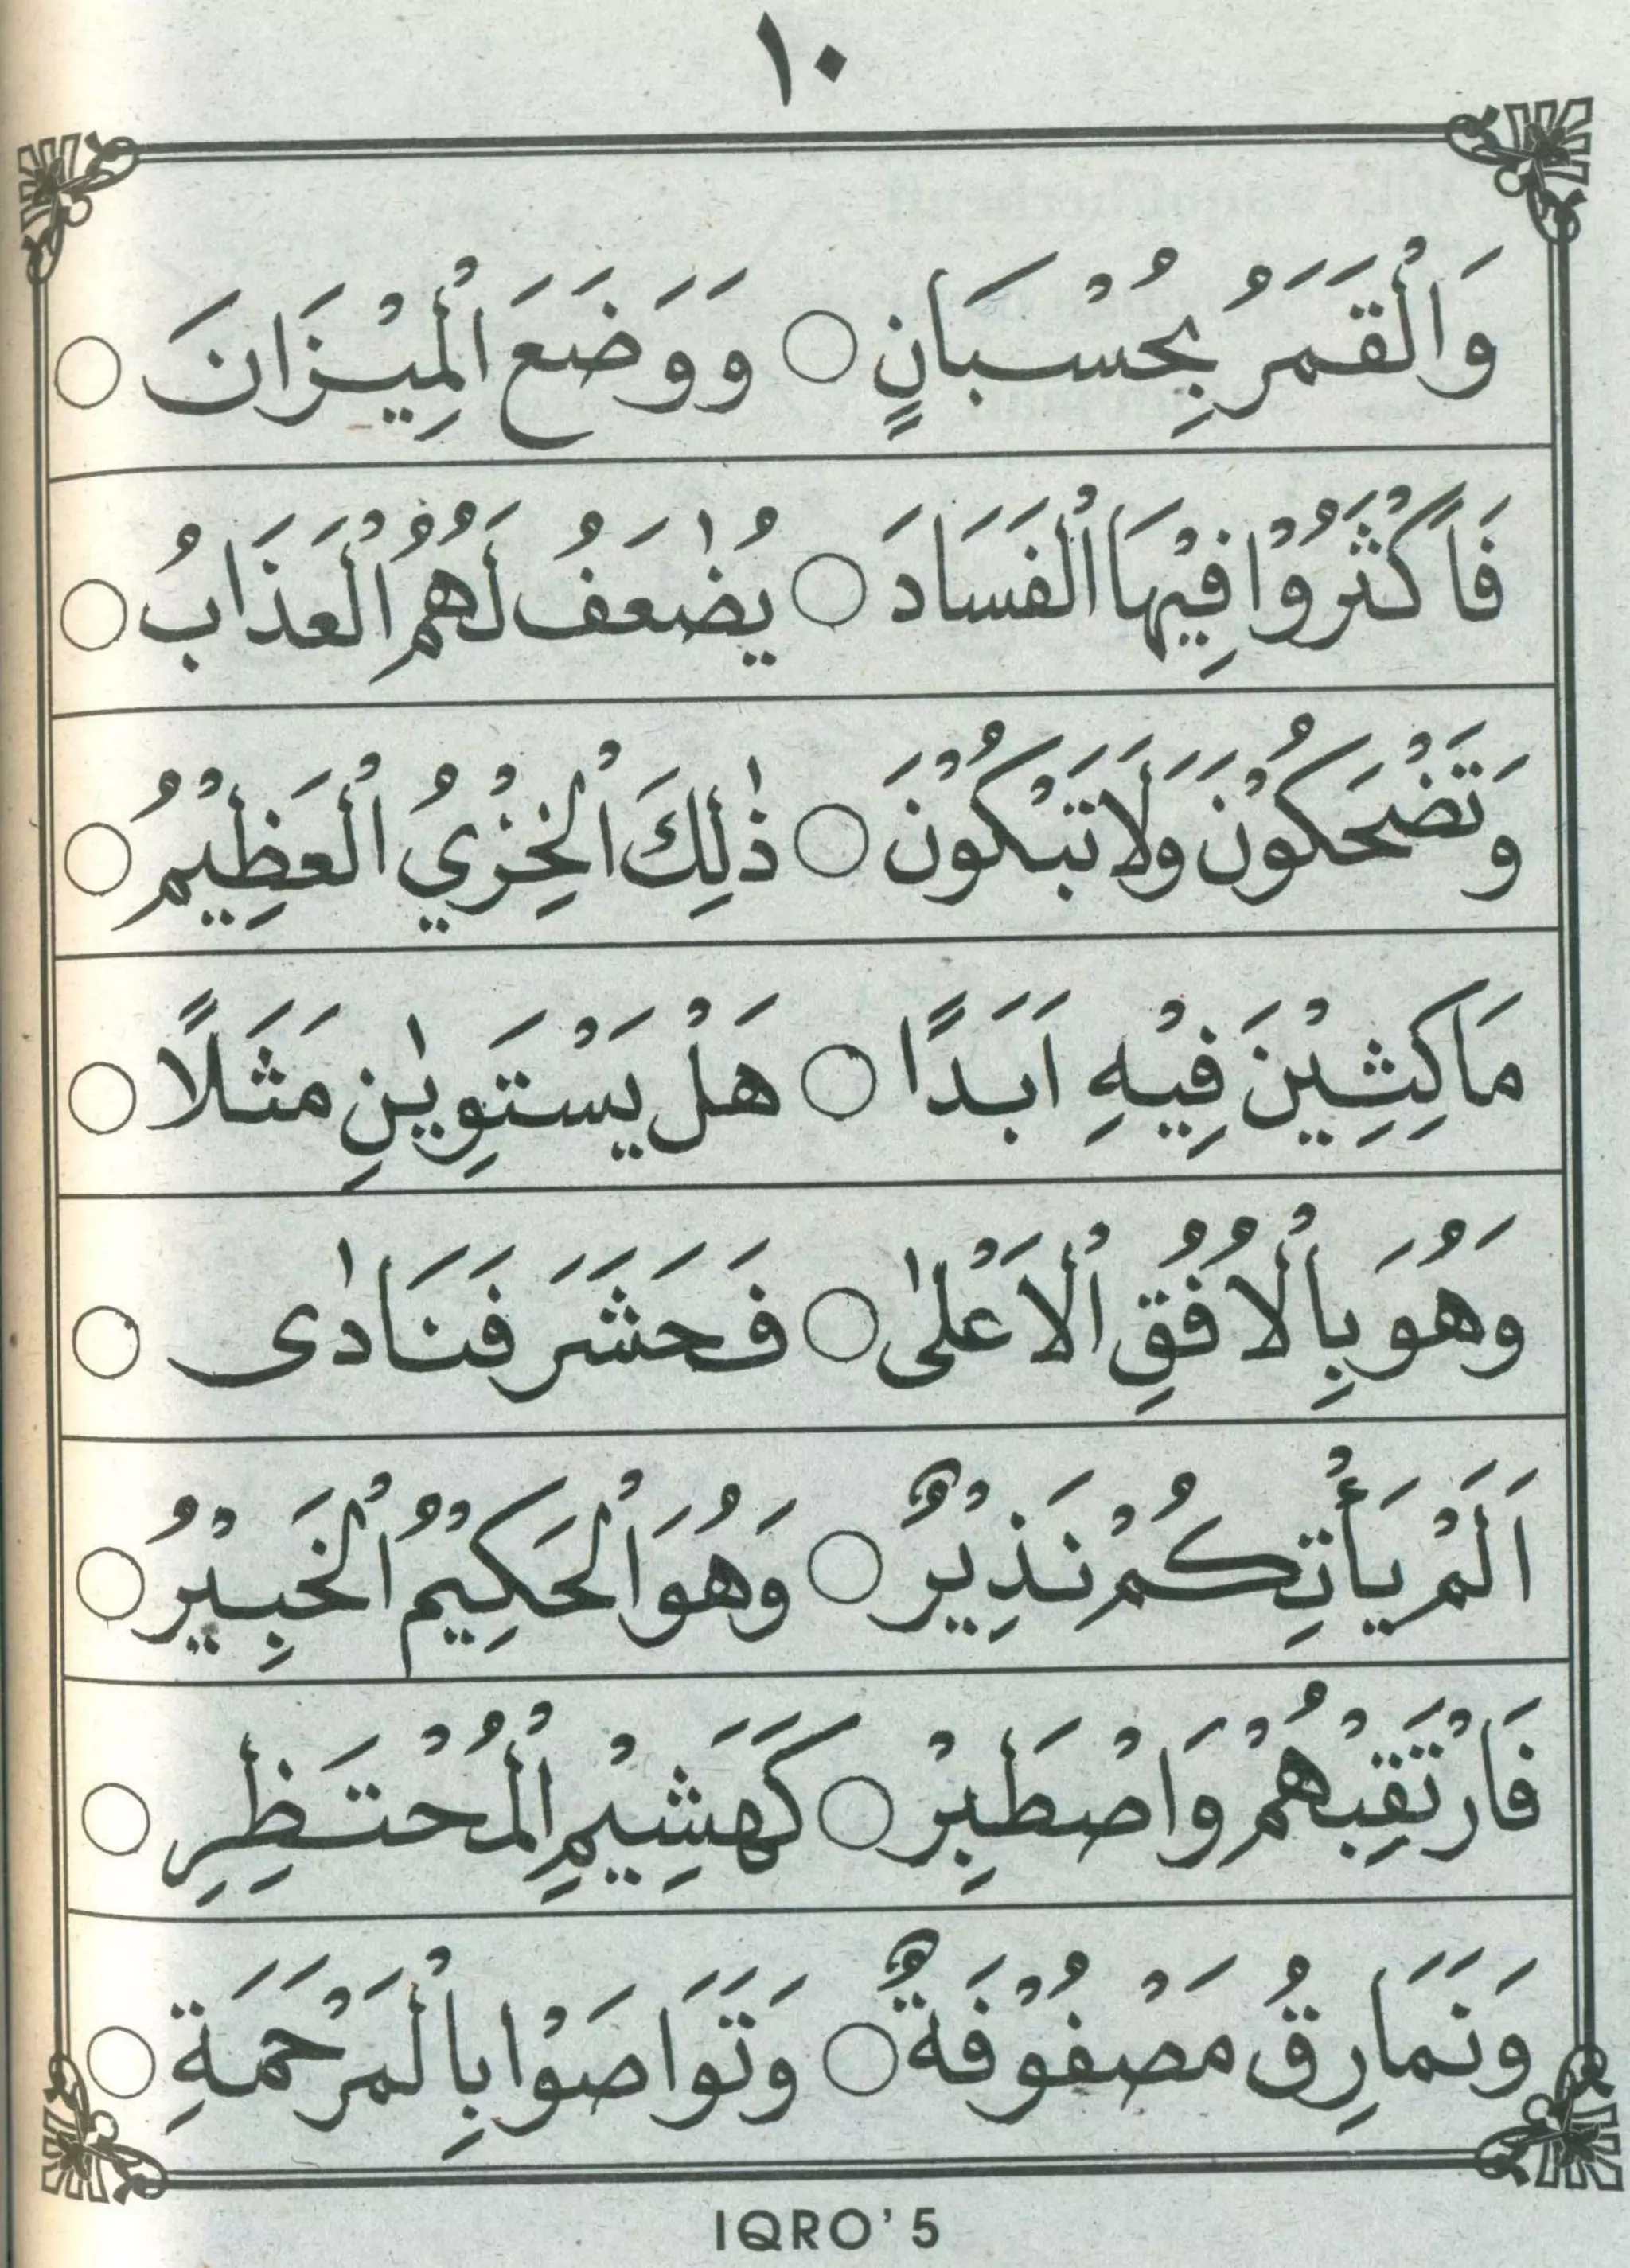 ١٠
وَالْقَمَرُ بِحُسْبَانٍ ○ وَوَضَعَ الْمِيْزَانَ ○
فَاَكْثَرُوْا فِيْهَا الْفَسَادَ ○ يُضٰعَفُ لَهُمُ الْعَذَابُ ○
وَتَضْحَكُوْنَ وَلَا تَبْكُوْنَ ○ ذٰلِكَ الْخِزْيُ الْعَظِيْمُ ○
مَاكِثِيْنَ فِيْهِ اَبَدًا ○ هَلْ يَسْتَوِيٰنِ مَثَلًا ○
وَهُوَ بِالْاُفُقِ الْاَعْلٰى ○ فَحَشَرَ فَنَادٰى ○
اَلَمْ يَأْتِكُمْ نَذِيْرٌ ○ وَهُوَ الْحَكِيْمُ الْخَبِيْرُ ○
فَارْتَقِبْهُمْ وَاصْطَبِرْ ○ كَهَشِيْمِ الْمُحْتَظِرِ ○
وَنَمَارِقُ مَصْفُوْفَةٌ ○ وَتَوَاصَوْا بِالْمَرْحَمَةِ ○
IQRO' 5